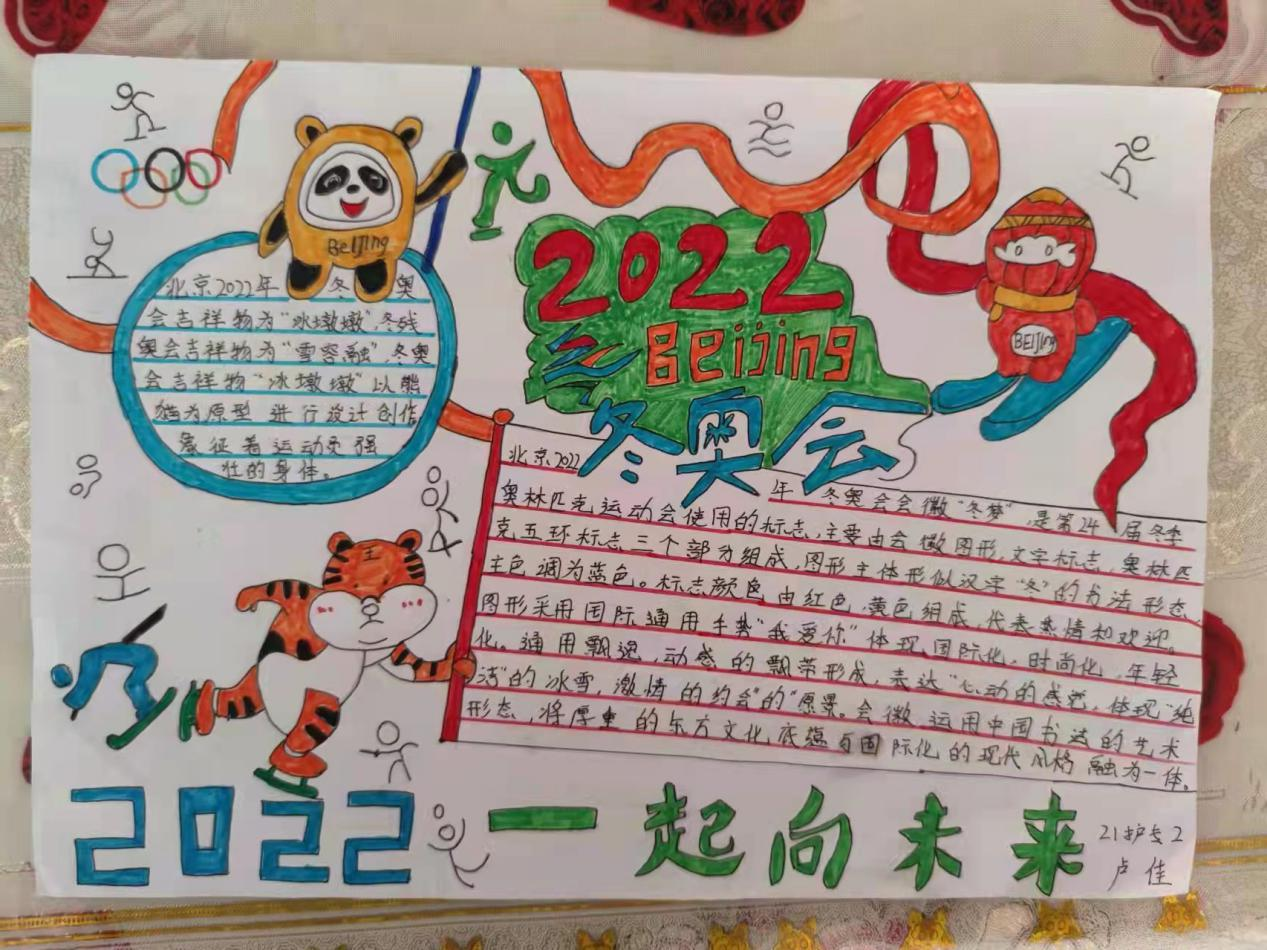 BeiJing
北京2022年 冬 奥
会吉祥物为“冰墩墩”,冬残
奥会吉祥物为“雪容融”,冬奥
会吉祥物“冰墩墩”以熊
猫为原型 进行设计创作
象征着运动员强
壮的身体。
2022
BeiJing
冬奥会
BEIJIng
北京2022 年 冬奥会会徽“冬梦”,是第24届冬季
奥林匹克运动会使用的标志,主要由会徽图形,文字标志,奥林匹
克五环标志三个部分组成,图形主体形似汉字“冬”的书法形态,
主色调为蓝色。标志颜色由红色,黄色组成,代表热情和欢迎。
图形采用国际通用手势“我爱你”体现国际化,时尚化,年轻
化。通用飘逸,动感的飘带形成,表达“心动的感觉,体现“纯
洁”的冰雪,激情的约会”的“愿景。会徽运用中国书法的艺术
形态,将厚重的东方文化底蕴与国际化的现代风格融为一体。
王
2022 一起向未来
21护专2
卢佳